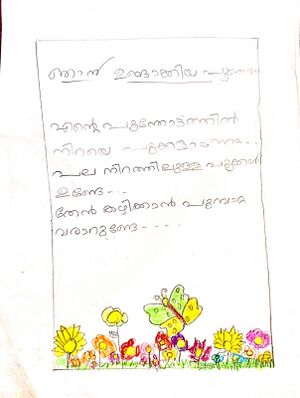 ഞാൻ ഉണ്ടാക്കിയ പൂന്തോട്ടം
എന്റെ പൂന്തോട്ടത്തിൽ
നിറയെ പൂക്കളാണല്ലോ...
പല നിറത്തിലുള്ള പൂക്കൾ
ഉണ്ടേ...
തേൻ കുടിക്കാൻ പൂമ്പാറ്റ
വരാറുണ്ടേ....